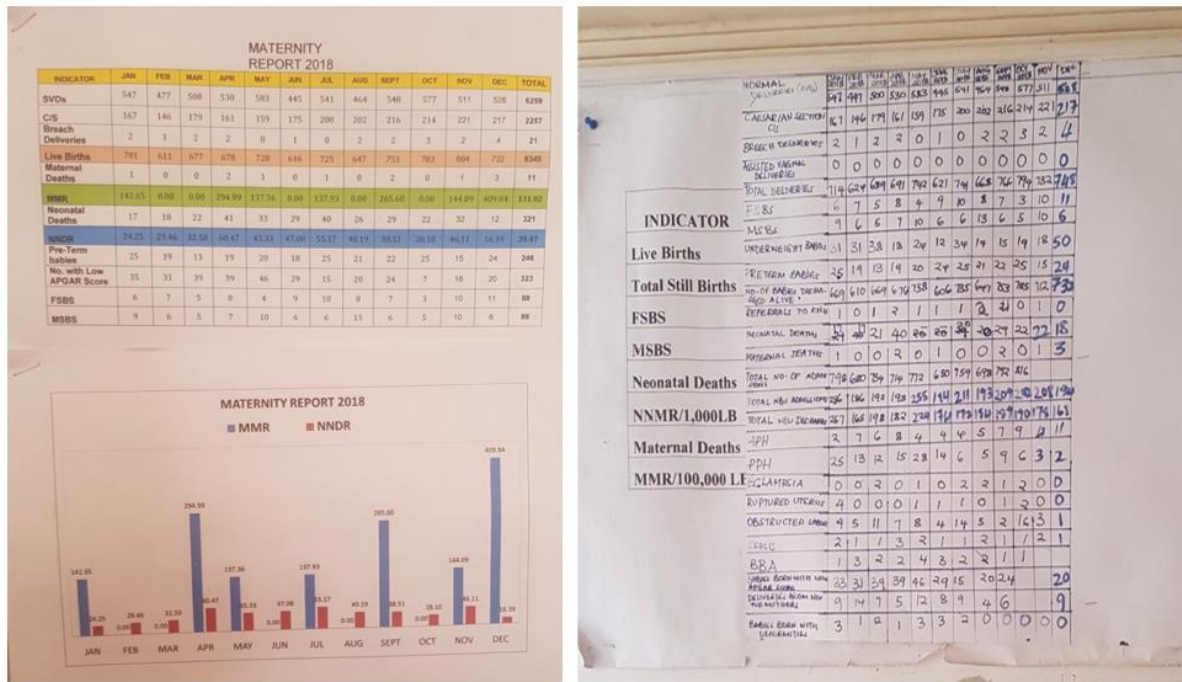 MATERNITY
REPORT 2018
INDICATOR JAN FEB MAR APR MAY JUN JUL AUG SEPT OCT NOV DEC TOTAL
SVDs 547 477 508 530 583 445 541 464 548 577 511 528 6259
C/S 167 146 179 161 159 175 200 202 216 214 221 217 2257
Breach
Deliveries 2 1 2 2 0 1 0 2 2 3 2 4 21
Live Births 701 611 677 678 728 616 725 647 753 783 694 732 8345
Maternal
Deaths 1 0 0 2 1 0 1 0 2 0 1 3 11
MMR 142.65 0.00 0.00 294.99 137.36 0.00 137.93 0.00 265.60 0.00 144.09 409.84 131.82
Neonatal
Deaths 17 18 22 41 33 29 40 26 29 22 32 12 321
NNDR 24.25 29.46 32.50 60.47 45.33 47.08 55.17 40.19 38.51 28.10 46.11 16.39
Pre-Term
babies 25 19 13 19 20 18 25 21 22 25 15 24 246
No. with Low
APGAR Score 35 31 39 39 46 29 15 20 24 7 18 20 323
FSBS 6 7 5 8 4 9 10 8 7 3 10 11 88
MSBS 9 6 5 7 10 6 6 13 6 5 10 6 89
MATERNITY REPORT 2018
MMR NNDR
142.65 24.25 0.00 29.46 0.00 32.50 294.99 60.47 137.36 45.33 0.00 47.08 137.93 55.17 0.00 40.19 265.60 38.51 0.00 28.10 144.09 46.11 409.84 16.39
JAN FEB MAR APR MAY JUN JUL AUG SEPT OCT NOV DEC
INDICATOR
Live Births
Total Still Births
FSBS
MSBS
Neonatal Deaths
NNMR/1,000LB
Maternal Deaths
MMR/100,000 LB
NORMAL
DELIVERIES 530 583 445 541 464 577 511
CAESARIAN SECTION
C/S 167 146 179 161 159 175 200 202 216 214 221 217
BREECH DELIVERIES 2 1 2 2 0 1 0 2 2 3 2 4
ASSISTED VAGINAL
DELIVERIES 0 0 0 0 0 0 0 0 0 0 0 0
TOTAL DELIVERIES 714 624 689 691 742 621 741 668 766 794 732 748
FSBS 6 7 5 8 4 9 10 8 7 3 10 11
MSBS 9 6 5 7 10 6 6 13 6 5 10 6
UNDERWEIGHT BABIES 31 31 38 18 24 12 34 14 15 19 18 50
PRETERM BABIES 25 19 13 19 20 24 25 21 22 25 15 24
NO. OF BABIES 669 610 669 676 738 606 735 712 732
REFERRALS TO 1 0 1 2 1 1 1 0 1 0
NEONATAL DEATHS 21 40 22 22 18
MATERNAL DEATHS 1 0 0 2 0 1 0 0 2 0 1 3
TOTAL NO. OF 798 680 714 772 650 759 698 792 816
TOTAL NBU ADMISSIONS 186 198 198 255 184 211 193 209 208
TOTAL NBU 267 165 198 182 224 178 168
APH 2 7 6 8 4 4 4 5 7 9 11
PPH 25 13 12 15 28 14 6 5 9 6 3 2
ECLAMPSIA 0 0 2 0 1 0 2 2 1 2 0 0
RUPTURED UTERUS 4 0 0 0 1 1 1 0 1 2 0 0
OBSTRUCTED LABOUR 9 5 11 7 8 4 14 5 2 16 3 1
2 1 1 3 2 1 1 2 1 1 2 1
BBA 1 3 2 2 4 3 2 2 1 1
BABIES BORN WITH LOW
APGAR SCORE 33 31 39 39 46 29 15 20 24 20
DELIVERIES FROM
MOTHERS 9 14 7 5 12 8 9 4 6 9
BABIES BORN WITH
DEFORMITIES 3 1 2 1 3 3 2 0 0 0 0 0